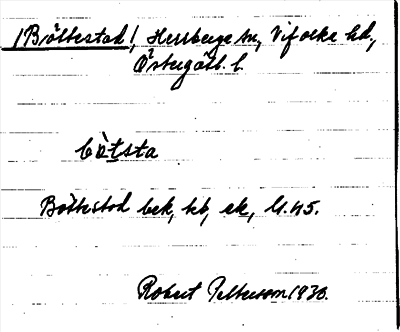 /Böttestad/, Herrberga sn, Vifolka hd.,
Östergötl. l.
bòtsta
Bottestad bek, kb, ek, U. 45.
Robert Petterson 1930.